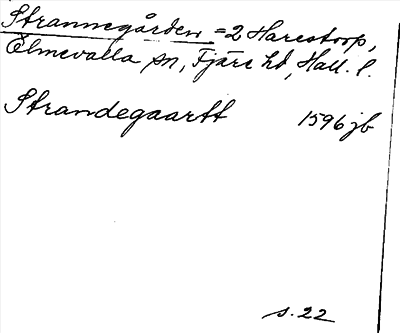 Strannegården = 2 Harestorp,
Elmevalla sn, Fjäre hd, Hall. l.
Strandegaartt 1596 jb
s. 22